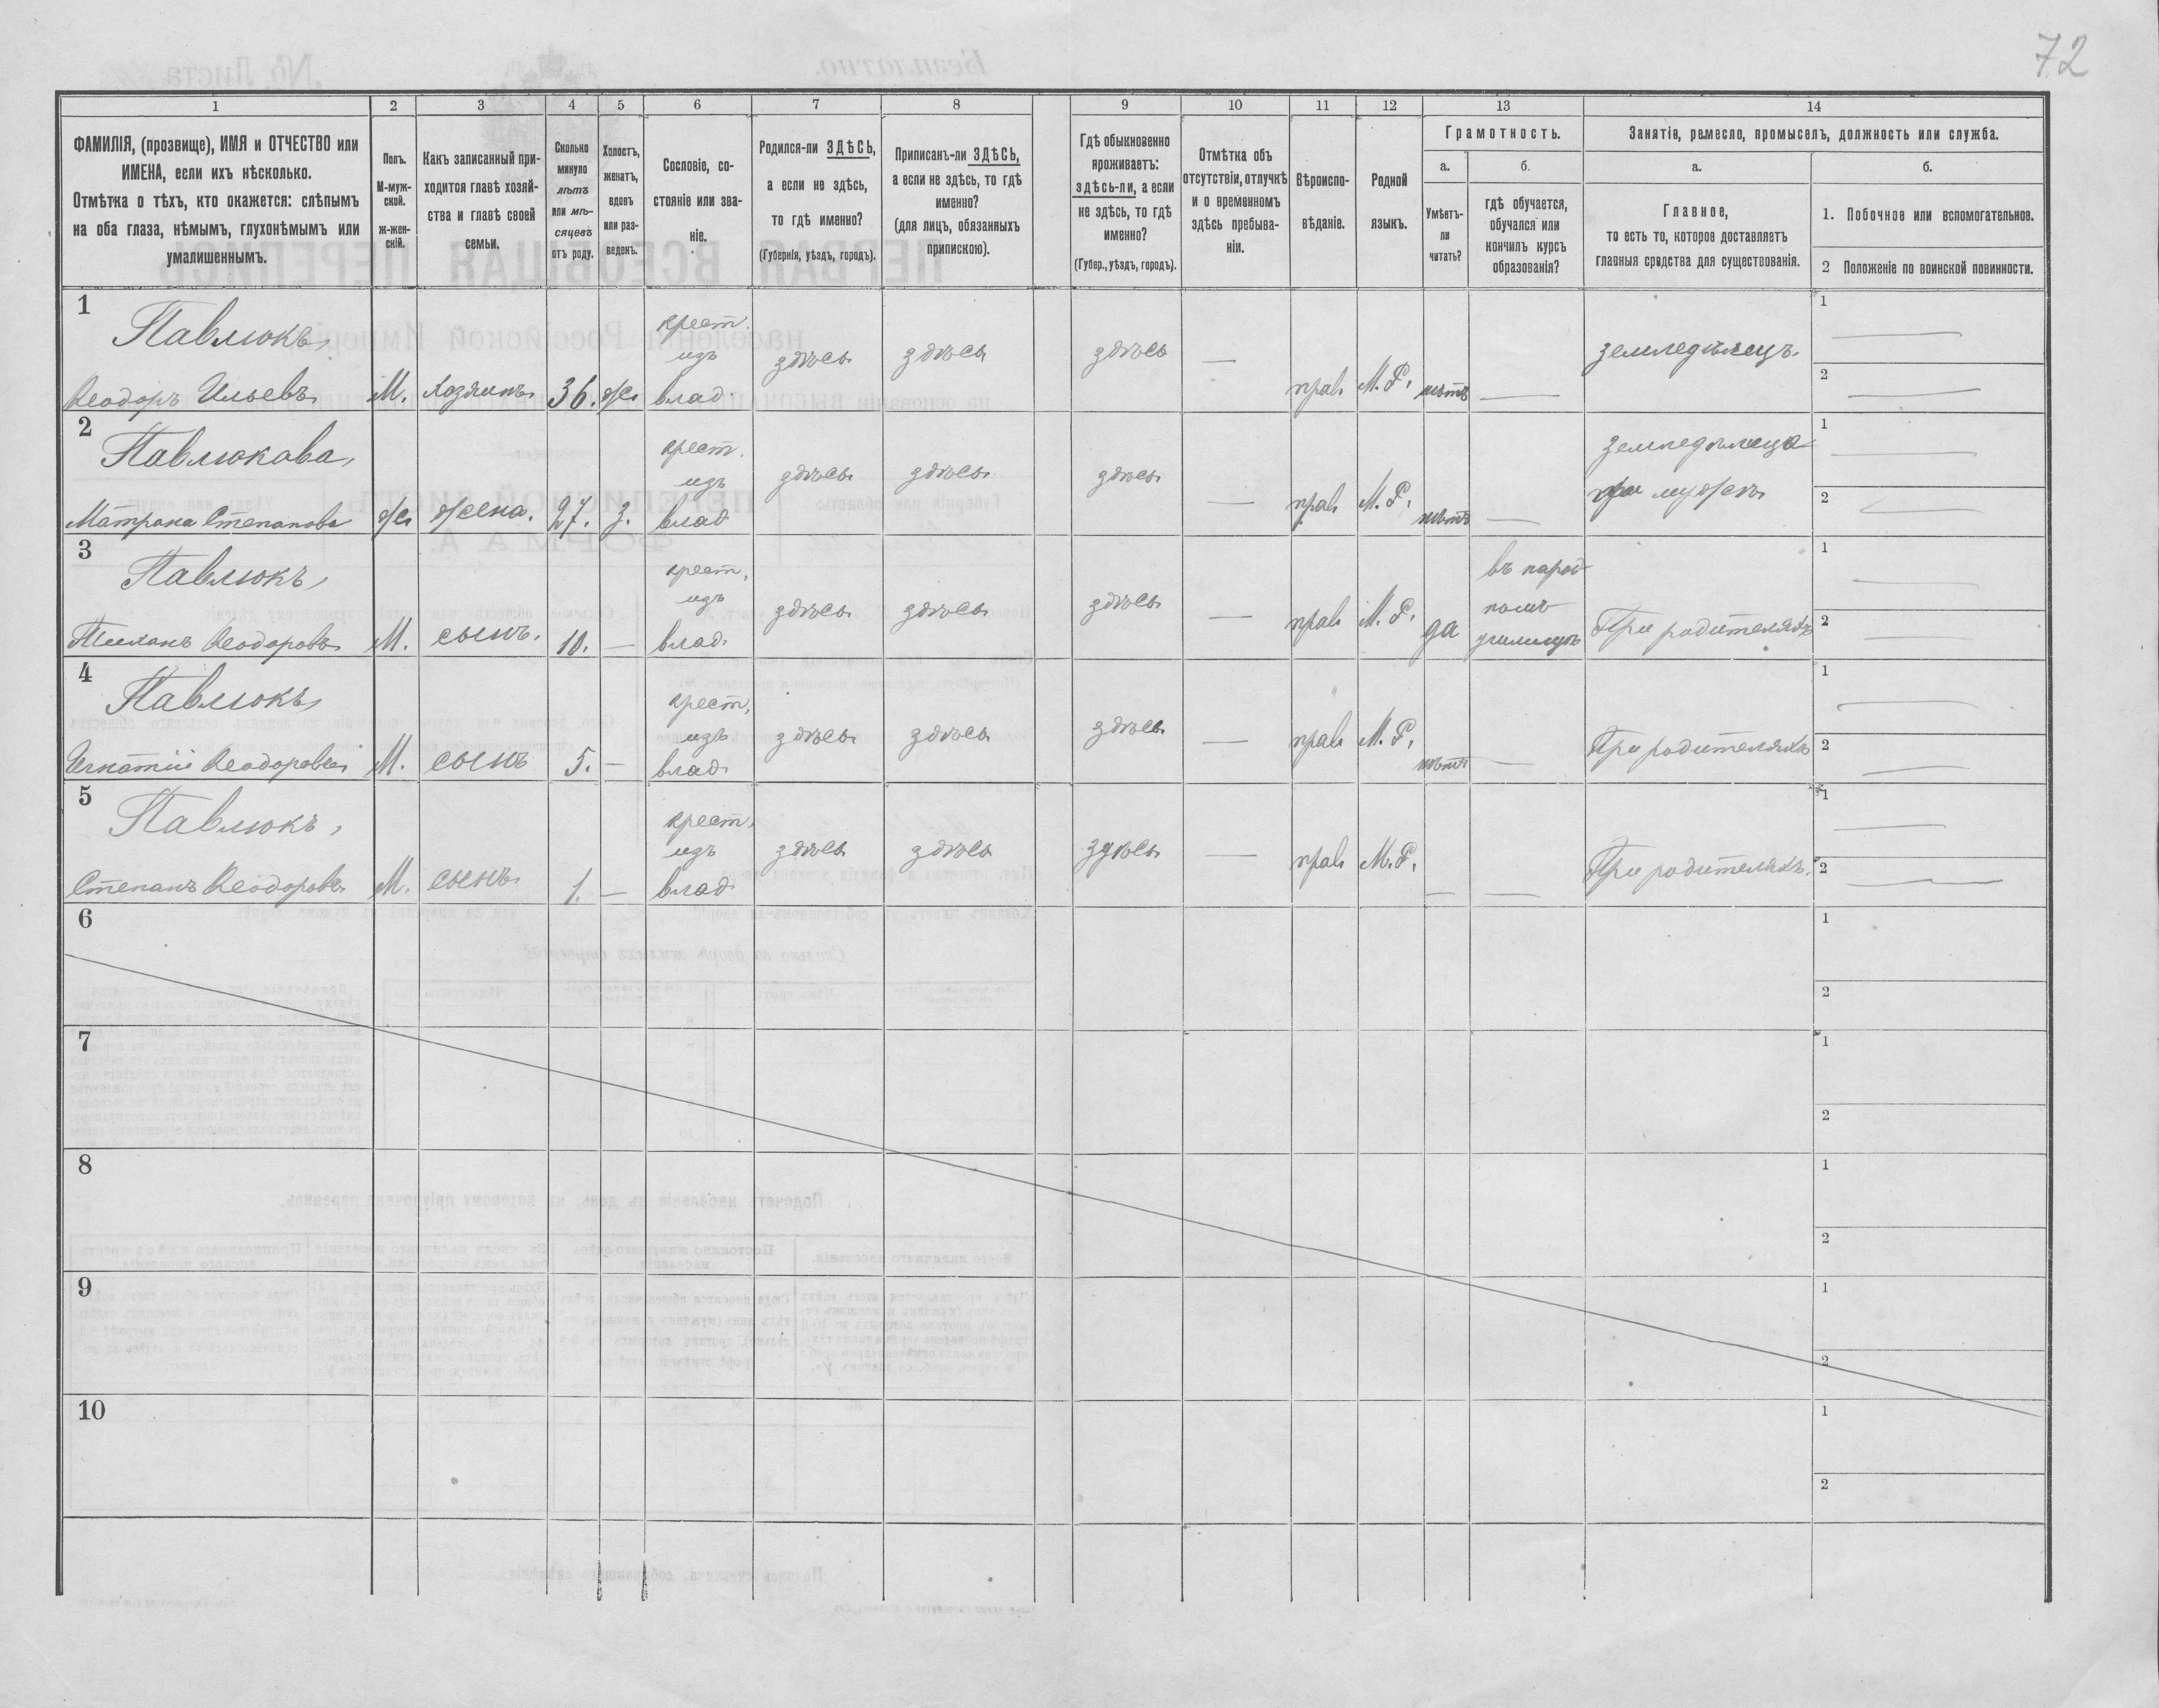 72
1 2 3 4 5 6 7 8 9 10 11 12 13 14
ФАМИЛІЯ, (прозвище), ИМЯ и ОТЧЕСТВО или
ИМЕНА, если ихъ нѣсколько.
Отмѣтка о тѣхъ, кто окажется: слѣпымъ
на оба глаза, нѣмымъ, глухонѣмымъ или
умалишеннымъ.
Полъ.
М-муж-
ской.
ж-жен-
скій.
Какъ записанный при-
ходится главѣ хозяй-
ства и главѣ своей
семьи.
Сколько
минуло
лѣтъ
или мѣ-
сяцевъ
отъ роду.
Холостъ,
женатъ,
вдовъ
или раз-
веденъ.
Сословіе, со-
стояніе или зва-
ніе.
Родился-ли ЗДѢСЬ,
а если не здѣсь,
то гдѣ именно?
(Губернія, уѣздъ, городъ).
Приписанъ-ли ЗДѢСЬ,
а если не здѣсь, то гдѣ
именно?
(для лицъ, обязанныхъ
припискою).
Гдѣ обыкновенно
проживаетъ:
здѣсь-ли, а если
не здѣсь, то гдѣ
именно?
(Губер., уѣздъ, городъ).
Отмѣтка объ
отсутствіи, отлучкѣ
и о временномъ
здѣсь пребыва-
ніи.
Вѣроиспо-
вѣданіе.
Родной
языкъ.
Грамотность.
а.
Умѣетъ-
ли
читать?
б.
гдѣ обучается,
обучался или
кончилъ курсъ
образованія?
Занятіе, ремесло, промыселъ, должность или служба.
а.
Главное,
то есть то, которое доставляетъ
главныя средства для существованія.
б.
1. Побочное или вспомогательное.
2 Положеніе по воинской повинности.
1
Павлюкъ,
Ѳеодоръ Ильевъ
М.
хозяинъ
36.
ж.
крест.
изъ
влад.
здѣсь
здѣсь
здѣсь
—
прав.
М. Р.
нѣтъ
—
земледѣлецъ.
1 —
2 —
2
Павлюкова,
Матрона Степанова
ж.
жена.
27.
з.
крест.
изъ
влад
здѣсь
здѣсь
здѣсь
—
прав.
М. Р.
нѣтъ
—
земледѣлеца
при мужѣ
1 —
2 —
3
Павлюкъ,
Ѳеодоровъ
М.
сынъ.
10.
—
крест.
изъ
влад.
здѣсь
здѣсь
здѣсь
—
прав.
М. Р.
да
въ народ
номъ
училищѣ
При родителяхъ
1 —
2 —
4
Павлюкъ,
Игнатій Ѳеодоровъ
М.
сынъ
5.
—
крест.
изъ
влад.
здѣсь
здѣсь
здѣсь
—
прав.
М. Р.
нѣтъ
—
При родителяхъ
1 —
2 —
5
Павлюкъ,
Степанъ Ѳеодоровъ
М.
сынъ
1.
—
крест.
изъ
влад.
здѣсь
здѣсь
здѣсь
—
прав.
М. Р.
—
—
При родителяхъ.
1 —
2 —
6
1
2
7
1
2
8
1
2
9
1
2
10
1
2